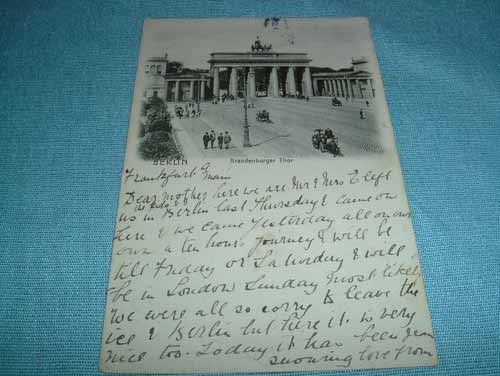 BERLIN
Brandenburger Thor
Frankfurt a/ Main
Dear Mother here we are Mr & Mrs E left
us in Berlin last Thursday & came on
here & we came Yesterday all on our
own a ten hours Journey & will be
till Friday or Saturday & will
be in London Sunday most likely
We were all so sorry to leave the
ice & Berlin but here it is very
nice too. Today it has been
snowing love from